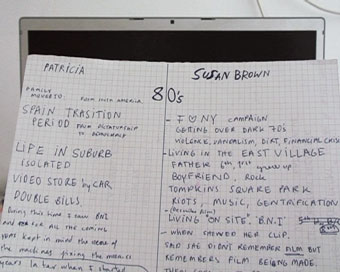 PATRICIA
SUSAN BROWN
80's
FAMILY MOVED TO:
FROM SOUTH AMERICA
SPAIN TRASITION
PERIOD FROM DICTATORSHIP TO DEMOCRACY
LIFE IN SUBURB
ISOLATED
VIDEO STORE by CAR
DOUBLE BILLS.
During this time I saw BNI
and all the coming
years kept in mind the scene of
the machines fixing the
years later when I started
- F♡NY CAMPAIGN
GETTING OVER DARK 70's
VIOLENCE, VANDALISM, DIRT, FINANCIAL CRISIS
- LIVING IN THE EAST VILLAGE
FATHER 6th, grew up
BOYFRIEND, Rock
TOMPKINS SQUARE PARK
RIOTS, MUSIC, GENTRIFICATION
LIVING "ON SITE" "B.N.I"
- WHEN SHOWED HER CLIP.
SAID SHE DIDN'T REMEMBER FILM BUT
REMEMBERS FILM BEING MADE.